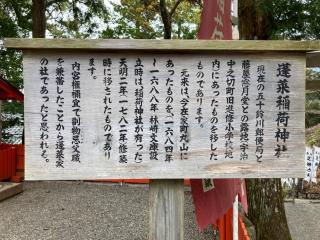 蓬莱稲荷神社
現在の五十鈴川郵便局と
藤屋窓月堂との露地(宇治
中之切町旧進修小学校地
内)にあったものを移した
ものであります。
元来は、今在家町丸山に
あったものを、(一六八四年
~一六八八年 林崎文庫設
立時は、稲荷神社が有った)
天明二年(一七八二年)修築
時に移されたものであり
ます。
内宮権禰宜で副物忌父職
を兼帯したことから蓬莱家
の社であったと思われる。